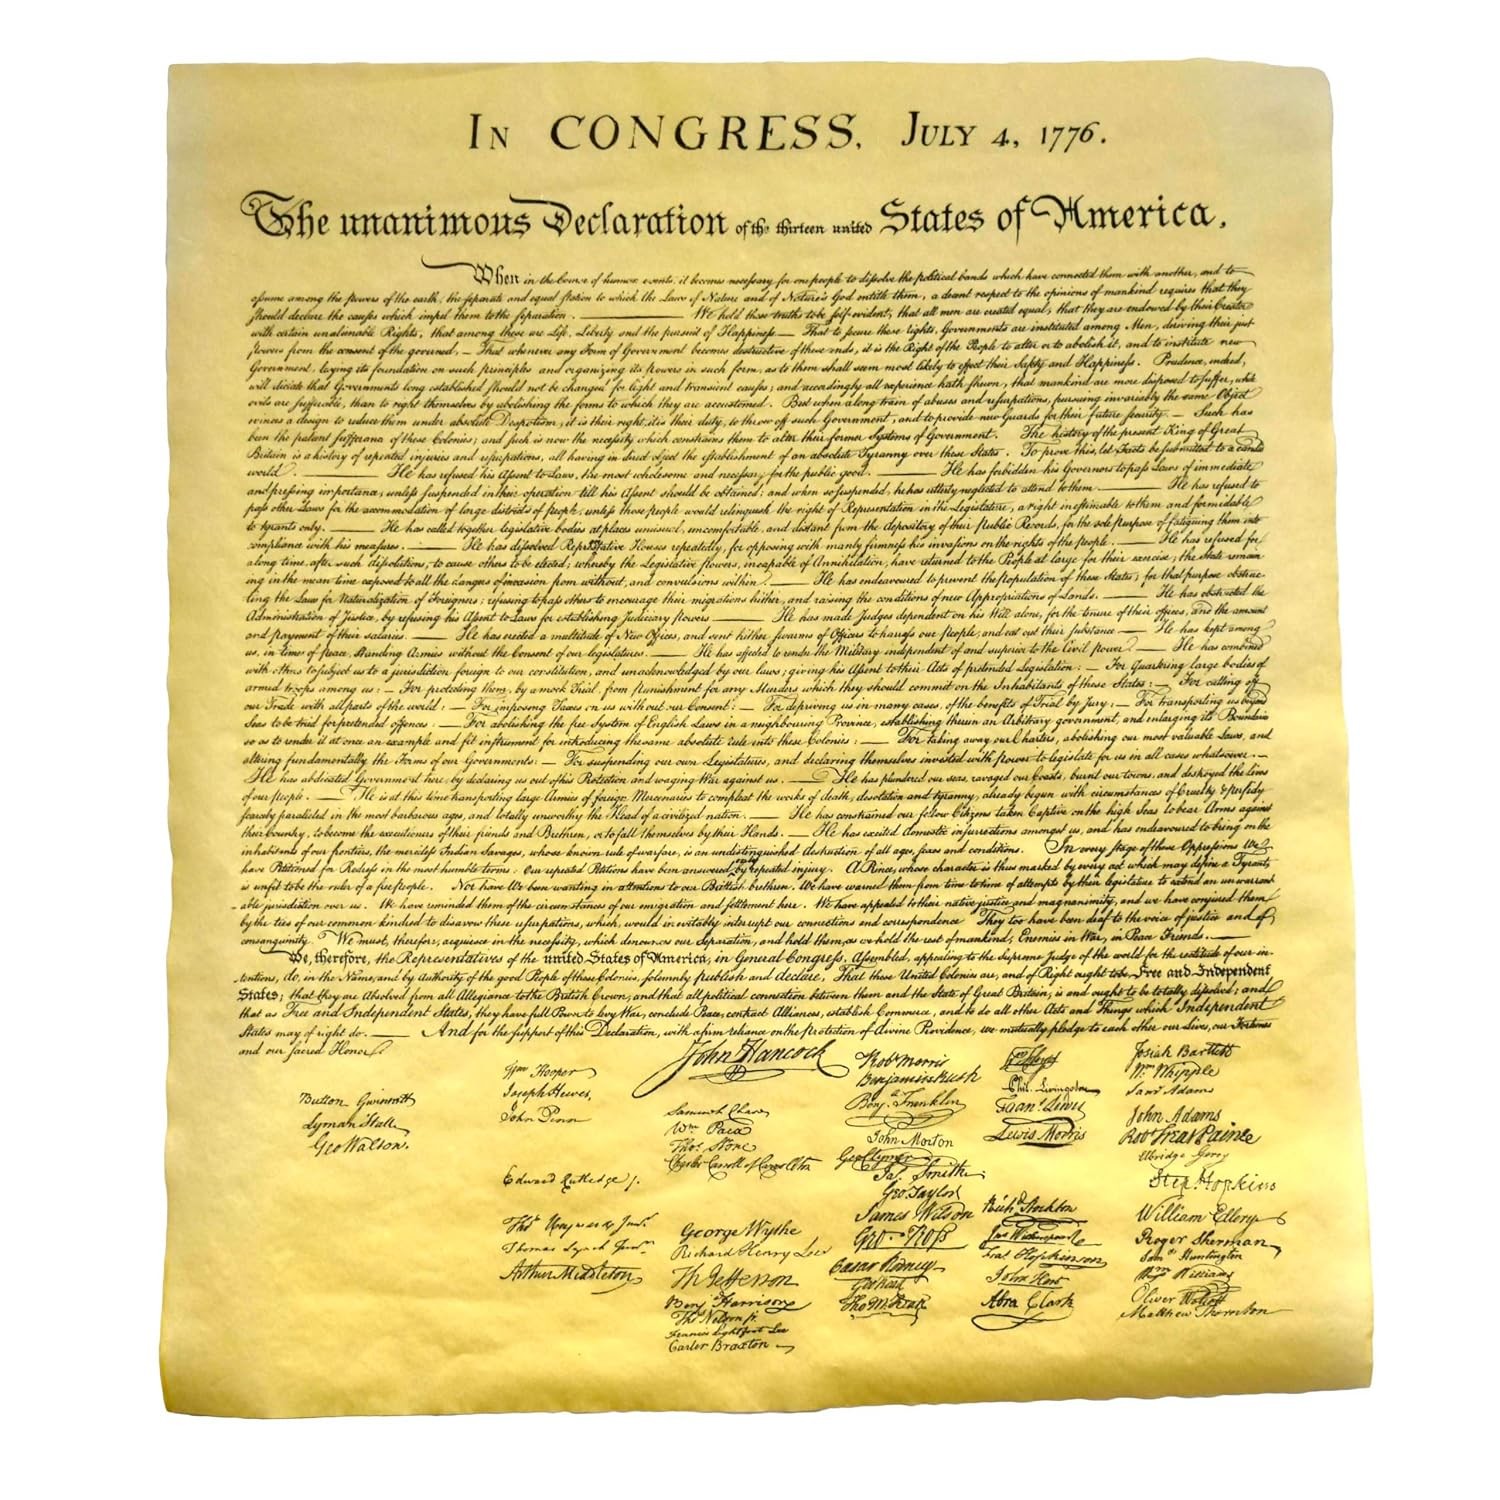 In CONGRESS, July 4, 1776.
The unanimous Declaration of the thirteen united States of America,
When in the Course of human events, it becomes necessary for one people to dissolve the political bands which have connected them with another, and to
assume among the powers of the earth, the separate and equal station to which the Laws of Nature and of Nature's God entitle them, a decent respect to the opinions of mankind requires that they
should declare the causes which impel them to the separation. — We hold these truths to be self-evident, that all men are created equal, that they are endowed by their Creator
with certain unalienable Rights, that among these are Life, Liberty and the pursuit of Happiness — That to secure these rights, Governments are instituted among Men, deriving their just
powers from the consent of the governed, — That whenever any Form of Government becomes destructive of these ends, it is the Right of the People to alter or to abolish it, and to institute new
Government, laying its foundation on such principles and organizing its powers in such form, as to them shall seem most likely to effect their Safety and Happiness. Prudence, indeed,
will dictate that Governments long established should not be changed for light and transient causes; and accordingly all experience hath shewn, that mankind are more disposed to suffer, while
evils are sufferable, than to right themselves by abolishing the forms to which they are accustomed. But when a long train of abuses and usurpations, pursuing invariably the same Object
evinces a design to reduce them under absolute Despotism, it is their right, it is their duty, to throw off such Government, and to provide new Guards for their future security. — Such has
been the patient sufferance of these Colonies; and such is now the necessity which constrains them to alter their former Systems of Government. The history of the present King of Great
Britain is a history of repeated injuries and usurpations, all having in direct object the establishment of an absolute Tyranny over these States. To prove this, let Facts be submitted to a candid
world. — He has refused his Assent to Laws, the most wholesome and necessary for the public good. — He has forbidden his Governors to pass Laws of immediate
and pressing importance, unless suspended in their operation till his Assent should be obtained; and when so suspended, he has utterly neglected to attend to them. — He has refused to
pass other Laws for the accommodation of large districts of people, unless those people would relinquish the right of Representation in the Legislature, a right inestimable to them and formidable
to tyrants only. — He has called together legislative bodies at places unusual, uncomfortable, and distant from the depository of their Public Records, for the sole purpose of fatiguing them into
compliance with his measures. — He has dissolved Representative Houses repeatedly, for opposing with manly firmness his invasions on the rights of the people. — He has refused for
a long time, after such dissolutions, to cause others to be elected; whereby the Legislative powers, incapable of Annihilation, have returned to the People at large for their exercise; the State remain
ing in the mean time exposed to all the dangers of invasion from without, and convulsions within. — He has endeavoured to prevent the population of these States; for that purpose obstruc-
ting the Laws for Naturalization of Foreigners; refusing to pass others to encourage their migrations hither, and raising the conditions of new Appropriations of Lands. — He has obstructed the
Administration of Justice, by refusing his Assent to Laws for establishing Judiciary powers — He has made Judges dependent on his Will alone, for the tenure of their offices, and the amount
and payment of their salaries. — He has erected a multitude of New Offices, and sent hither swarms of Officers to harrass our people, and eat out their substance — He has kept among
us, in times of peace, Standing Armies without the Consent of our legislatures. — He has affected to render the Military independent of and superior to the Civil power. — He has combined
with others to subject us to a jurisdiction foreign to our constitution, and unacknowledged by our laws; giving his Assent to their Acts of pretended Legislation: — For Quartering large bodies of
armed troops among us: — For protecting them, by a mock Trial, from punishment for any Murders which they should commit on the Inhabitants of these States: — For cutting off
our Trade with all parts of the world: — For imposing Taxes on us without our Consent: — For depriving us in many cases, of the benefits of Trial by Jury: — For transporting us beyond
Seas to be tried for pretended offences — For abolishing the free System of English Laws in a neighbouring Province, establishing therein an Arbitrary government, and enlarging its Boundaries
so as to render it at once an example and fit instrument for introducing the same absolute rule into these Colonies: — For taking away our Charters, abolishing our most valuable Laws, and
altering fundamentally the Forms of our Governments: — For suspending our own Legislatures, and declaring themselves invested with power to legislate for us in all cases whatsoever. —
He has abdicated Government here, by declaring us out of his Protection and waging War against us. — He has plundered our seas, ravaged our Coasts, burnt our towns, and destroyed the lives
of our people. — He is at this time transporting large Armies of foreign Mercenaries to compleat the works of death, desolation and tyranny, already begun with circumstances of Cruelty & perfidy
scarcely paralleled in the most barbarous ages, and totally unworthy the Head of a civilized nation. — He has constrained our fellow Citizens taken Captive on the high Seas to bear Arms against
their Country, to become the executioners of their friends and Brethren, or to fall themselves by their Hands. — He has excited domestic insurrections amongst us, and has endeavoured to bring on the
inhabitants of our frontiers, the merciless Indian Savages, whose known rule of warfare, is an undistinguished destruction of all ages, sexes and conditions. In every stage of these Oppressions We
have Petitioned for Redress in the most humble terms: Our repeated Petitions have been answered only by repeated injury. A Prince, whose character is thus marked by every act which may define a Tyrant,
is unfit to be the ruler of a free people. Nor have We been wanting in attentions to our Brittish brethren. We have warned them from time to time of attempts by their legislature to extend an unwarrant
-able jurisdiction over us. We have reminded them of the circumstances of our emigration and settlement here. We have appealed to their native justice and magnanimity, and we have conjured them
by the ties of our common kindred to disavow these usurpations, which, would inevitably interrupt our connections and correspondence They too have been deaf to the voice of justice and of
consanguinity. We must, therefore, acquiesce in the necessity, which denounces our Separation, and hold them, as we hold the rest of mankind, Enemies in War, in Peace Friends. —
We, therefore, the Representatives of the united States of America, in General Congress, Assembled, appealing to the Supreme Judge of the world for the rectitude of our in-
tentions, do, in the Name, and by Authority of the good People of these Colonies, solemnly publish and declare, That these United Colonies are, and of Right ought to be Free and Independent
States; that they are Absolved from all Allegiance to the British Crown, and that all political connection between them and the State of Great Britain, is and ought to be totally dissolved; and
that as Free and Independent States, they have full Power to levy War, conclude Peace, contract Alliances, establish Commerce, and to do all other Acts and Things which Independent
States may of right do. — And for the support of this Declaration, with a firm reliance on the protection of divine Providence, we mutually pledge to each other our Lives, our Fortunes
and our Sacred Honor.
Button Gwinnett
Lyman Hall
Geo Walton.
Wm Hooper
Joseph Hewes,
John Penn
Edward Rutledge /.
Thos Heyward Junr.
Thomas Lynch Junr.
Arthur Middleton
John Hancock
Samuel Chase
Wm Paca
Thos. Stone
Charles Carroll of Carrollton
George Wythe
Richard Henry Lee
Th Jefferson
Benj Harrison
Thos Nelson jr.
Francis Lightfoot Lee
Carter Braxton
Robt Morris
Benjamin Rush
Benj. Franklin
John Morton
Geo Clymer
Jas. Smith
Geo. Taylor
James Wilson
Geo. Ross
Caesar Rodney
Geo Read
Tho M:Kean
Wm Floyd
Phil. Livingston
Frans. Lewis
Lewis Morris
Richd. Stockton
Jno Witherspoon
Fras. Hopkinson
John Hart
Abra Clark
Josiah Bartlett
Wm. Whipple
Saml Adams
John Adams
Robt Treat Paine
Elbridge Gerry
Step. Hopkins
William Ellery
Roger Sherman
Saml Huntington
Wm Williams
Oliver Wolcott
Matthew Thornton